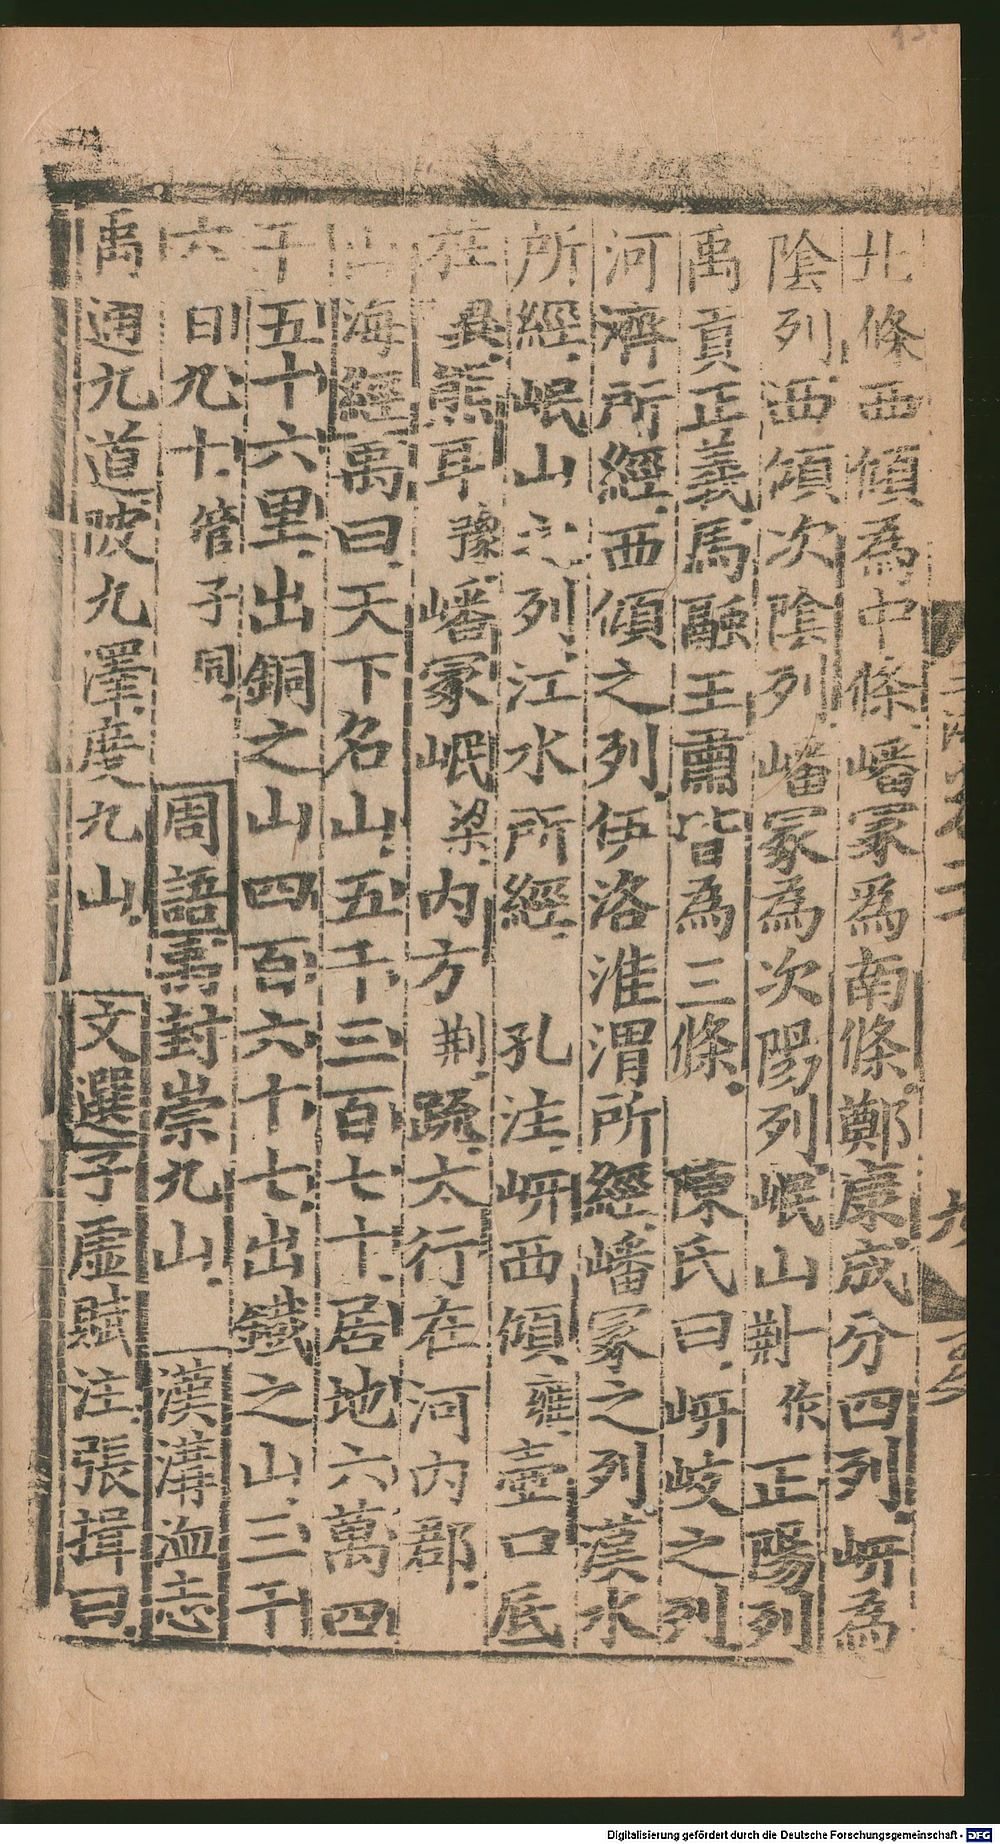 北條西傾為中條嶓冢爲南條鄭康成分四列岍為
陰列西傾次陰列嶓冢為次陽列岷山荆作正陽列
禹貢正義馬融王肅皆為三條　陳氏曰岍岐之列
河濟所經西傾之列伊洛淮渭所經嶓冢之列漢水
所經岷山之列江水所經　孔注岍西傾雍壺口厎
柱冀熊耳豫嶓冢岷梁内方荆疏太行在河内郡
山海經禹曰天下名山五千三百七十居地六萬四
千五十六里出銅之山四百六十七出鐵之山三千
六百九十管子同　周語禹封崇九山　漢溝洫志
禹通九道陂九澤度九山　文選子虛賦注張揖曰
六
Digitalisierung gefördert durch die Deutsche Forschungsgemeinschaft - DFG